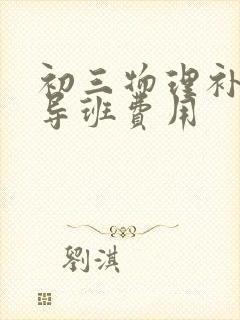 初三物理补
导班费用
劉淇